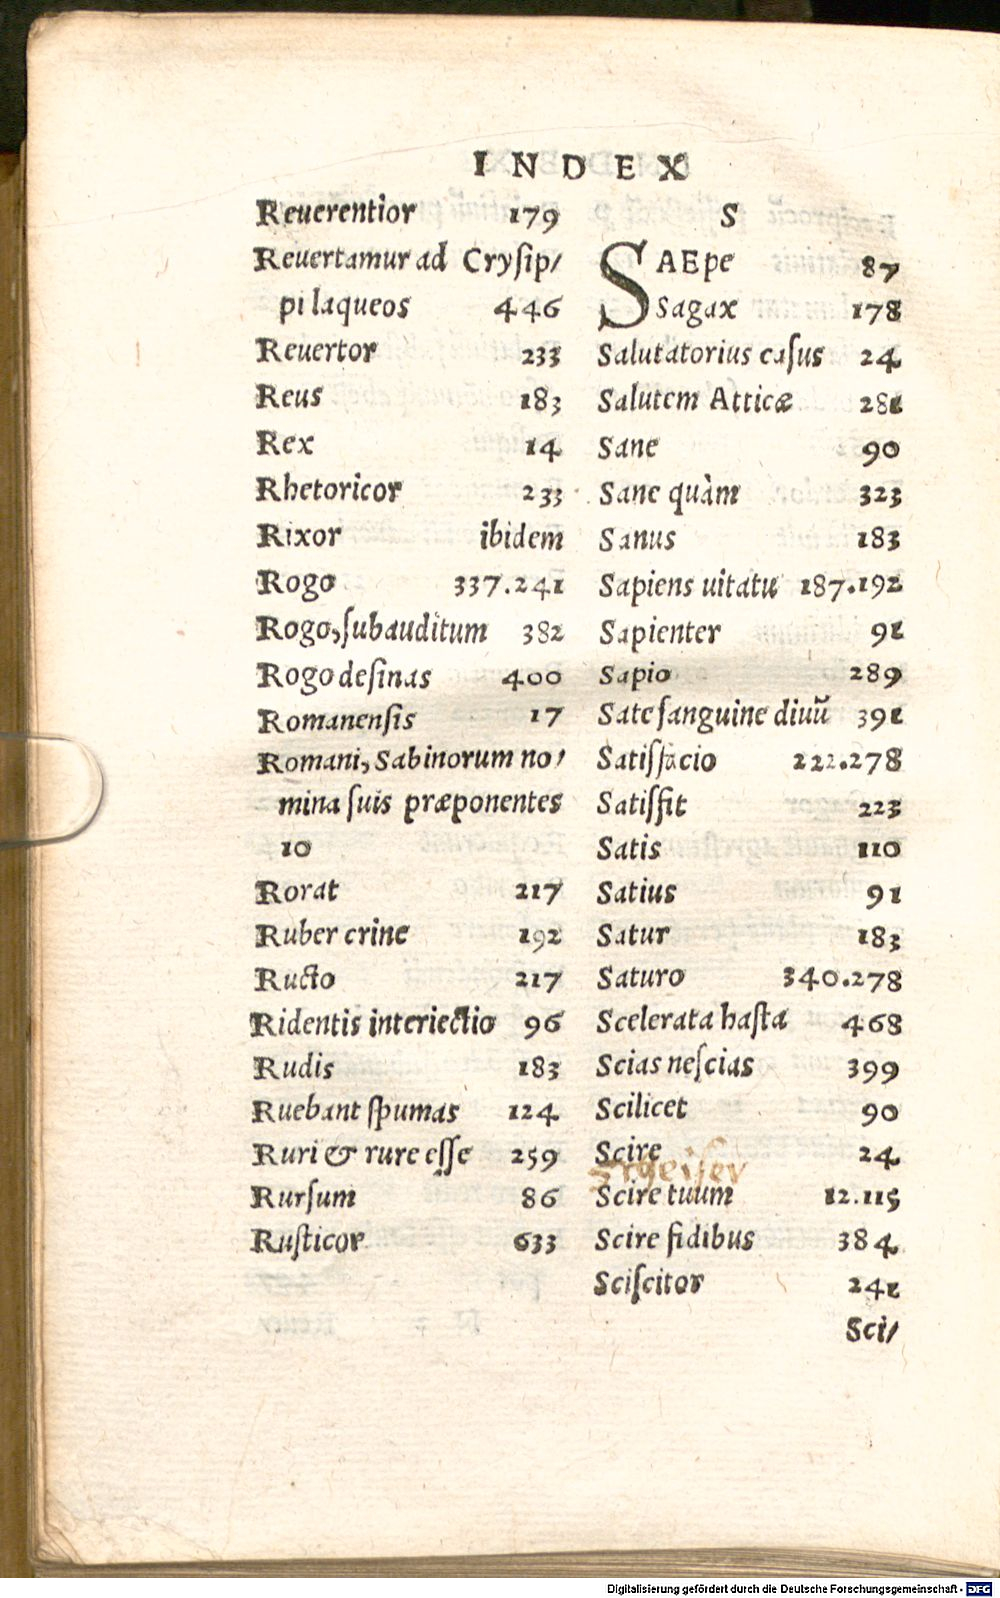 INDEX
Reuerentior 179
Reuertamur ad Crysip/
pi laqueos 446
Reuertor 233
Reus 183
Rex 14
Rhetoricor 233
Rixor ibidem
Rogo 337.241
Rogo, subauditum 382
Rogo desinas 400
Romanensis 17
Romani, Sabinorum no/
mina suis præponentes
10
Rorat 217
Ruber crine 192
Ructo 217
Ridentis interiectio 96
Rudis 183
Ruebant spumas 124
Ruri & rure esse 259
Rursum 86
Rusticor 633
S
SAEpe 87
Sagax 178
Salutatorius casus 24
Salutem Atticæ 281
Sane 90
Sane quàm 323
Sanus 183
Sapiens uitatu 187.192
Sapienter 91
Sapio 289
Sate sanguine diuũ 391
Satisfacio 222.278
Satisfit 223
Satis 110
Satius 91
Satur 183
Saturo 340.278
Scelerata hasta 468
Scias nescias 399
Scilicet 90
Scire 24
Scire tuum 12.115
Scire fidibus 384
Sciscitor 241
Sci/
Digitalisierung gefördert durch die Deutsche Forschungsgemeinschaft - DFG